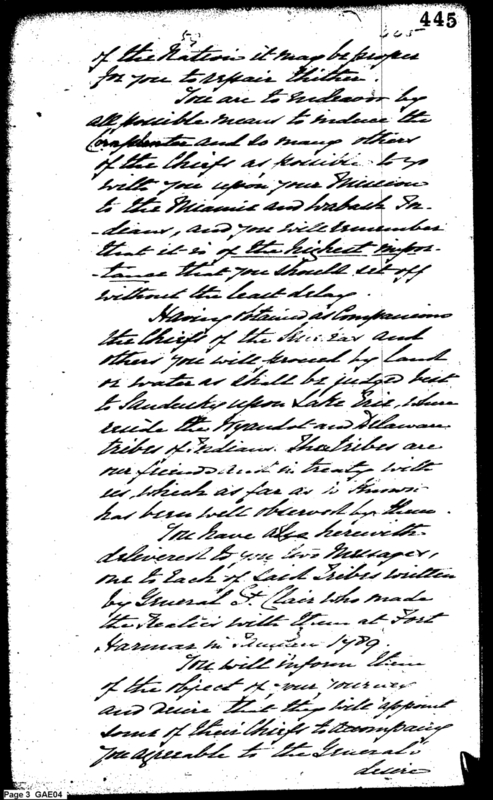 445
of the Nation it may be proper
for you to repair thither.
You are to endeavor by
all possible means to induce the
Cornplanter and so many others
of the Chiefs as possible to go
with you upon your Mission
to the Miamis and Wabash In-
-dians, and you will remember
that it is of the highest impor-
-tance that you should set off
without the least delay.
Having obtained as Companions
the Chiefs of the Senecas and
others you will proceed by land
or water as shall be judged best
to Sandusky upon Lake Erie, where
reside the Wyandot and Delaware
tribes of Indians. These tribes are
our friends and in treaty with
us, which as far as is known
has been well observed by them.
You have also herewith
delivered to you two Messages,
one to each of said Tribes written
by General St. Clair who made
the Treaties with them at Fort
Harmar in January 1789.
You will inform them
of the object of your journey
and desire that they will appoint
some of their Chiefs to accompany
you agreeable to the General's
desire
Page 3 GAE04